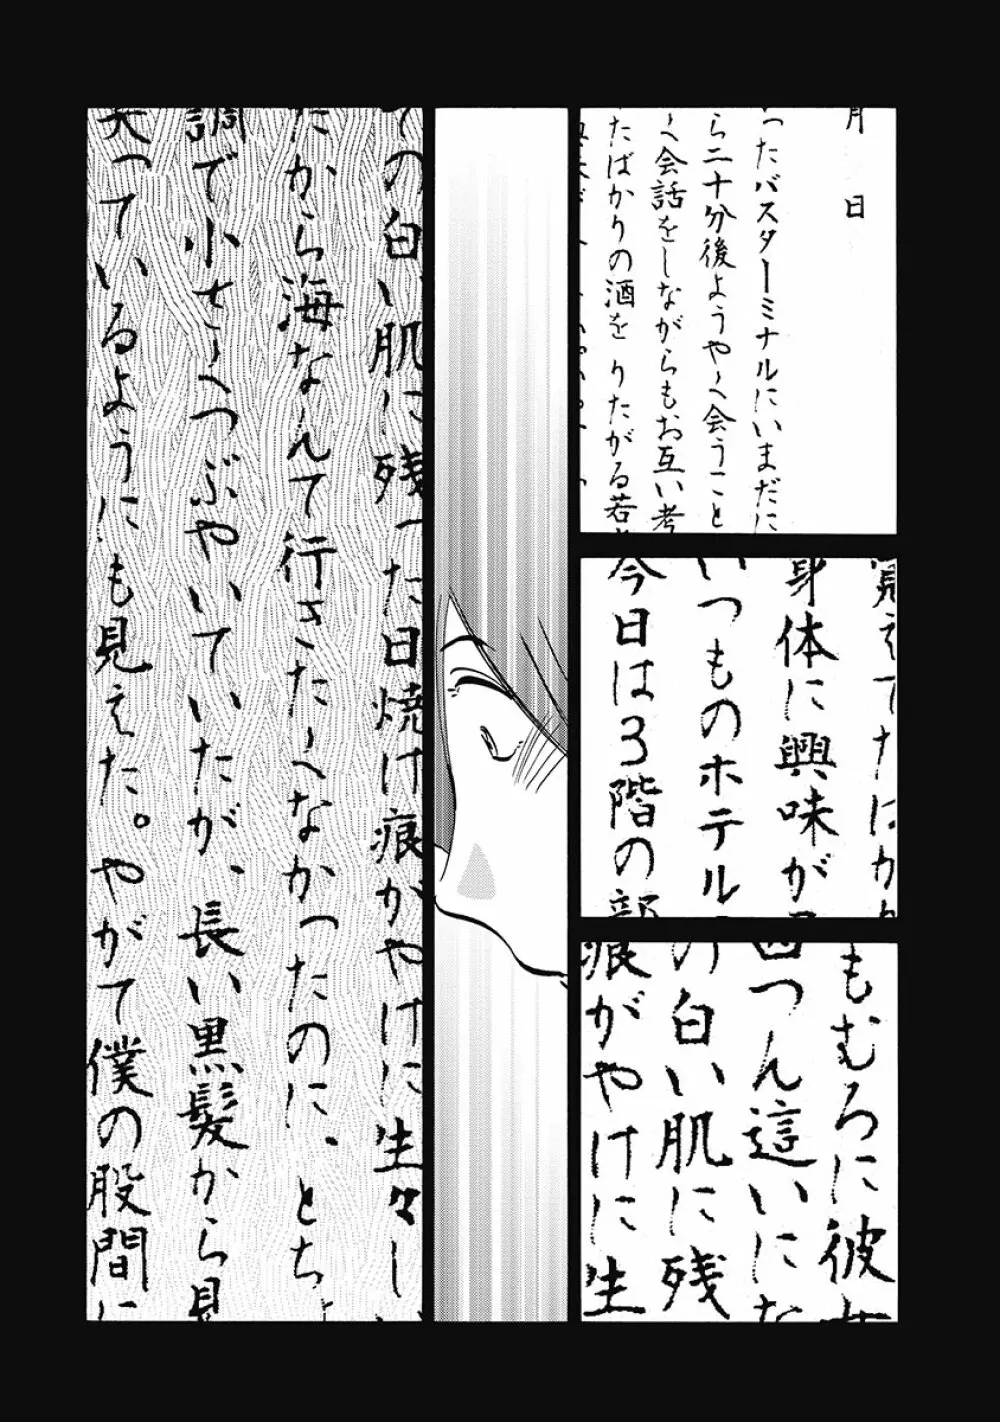 月 日
ったバスターミナルにいまだに
ら二十分後ようやく会うこと
く会話をしながらもお互い考
たばかりの酒を りたがる若
覚えてたばか
身体に興味が
いつものホテル
今日は3階の部
もむろに彼女
四つん這いにな
の白い肌に残
痕がやけに生
ての白い肌に残った日焼け痕がやけに生々し
だから海なんて行きたくなかったのに、とち
調で小さくつぶやいていたが、長い黒髪から見
笑っているようにも見えた。やがて僕の股間に